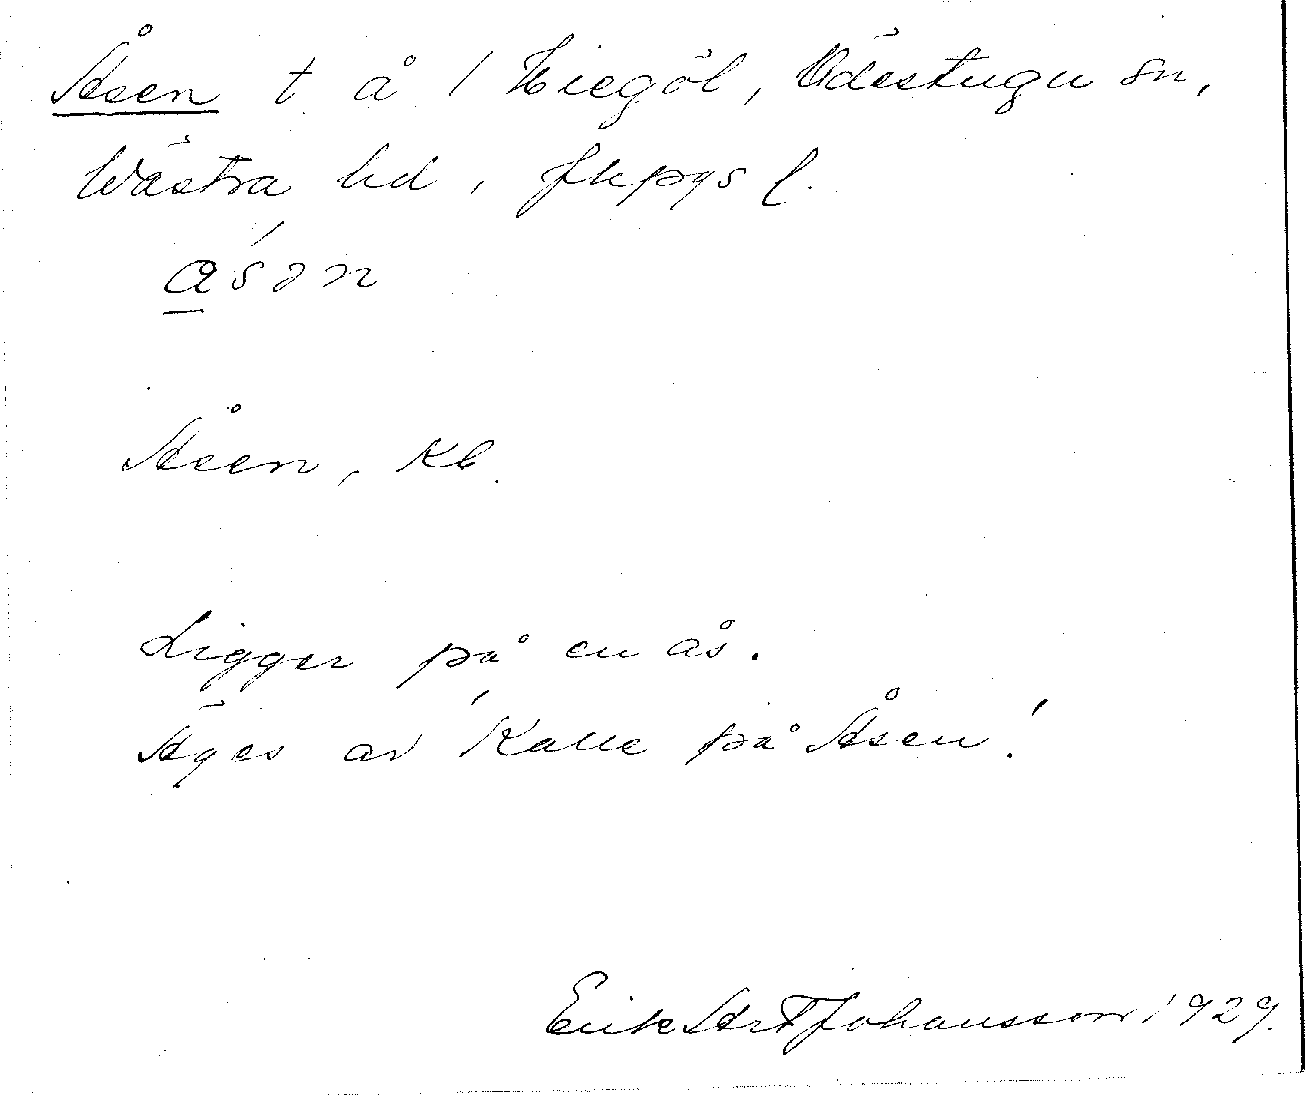 Åsen t å 1 Hiegöl, Ödestugu sn,
Wästra hd, Jkpgs l.
a̲'sən
Åsen, Kb.
Ligger på en ås.
Äges av 'Kalle på Åsen'.
Erik Art Johansson 1929.